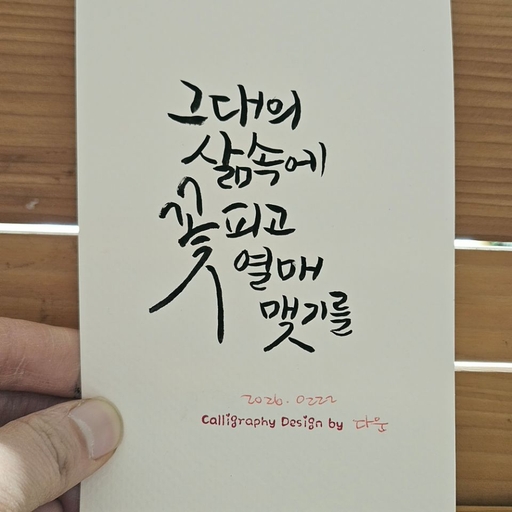 그대의
삶속에
꽃 피고
열매
맺기를
2026. 0222
Calligraphy Design by 다운